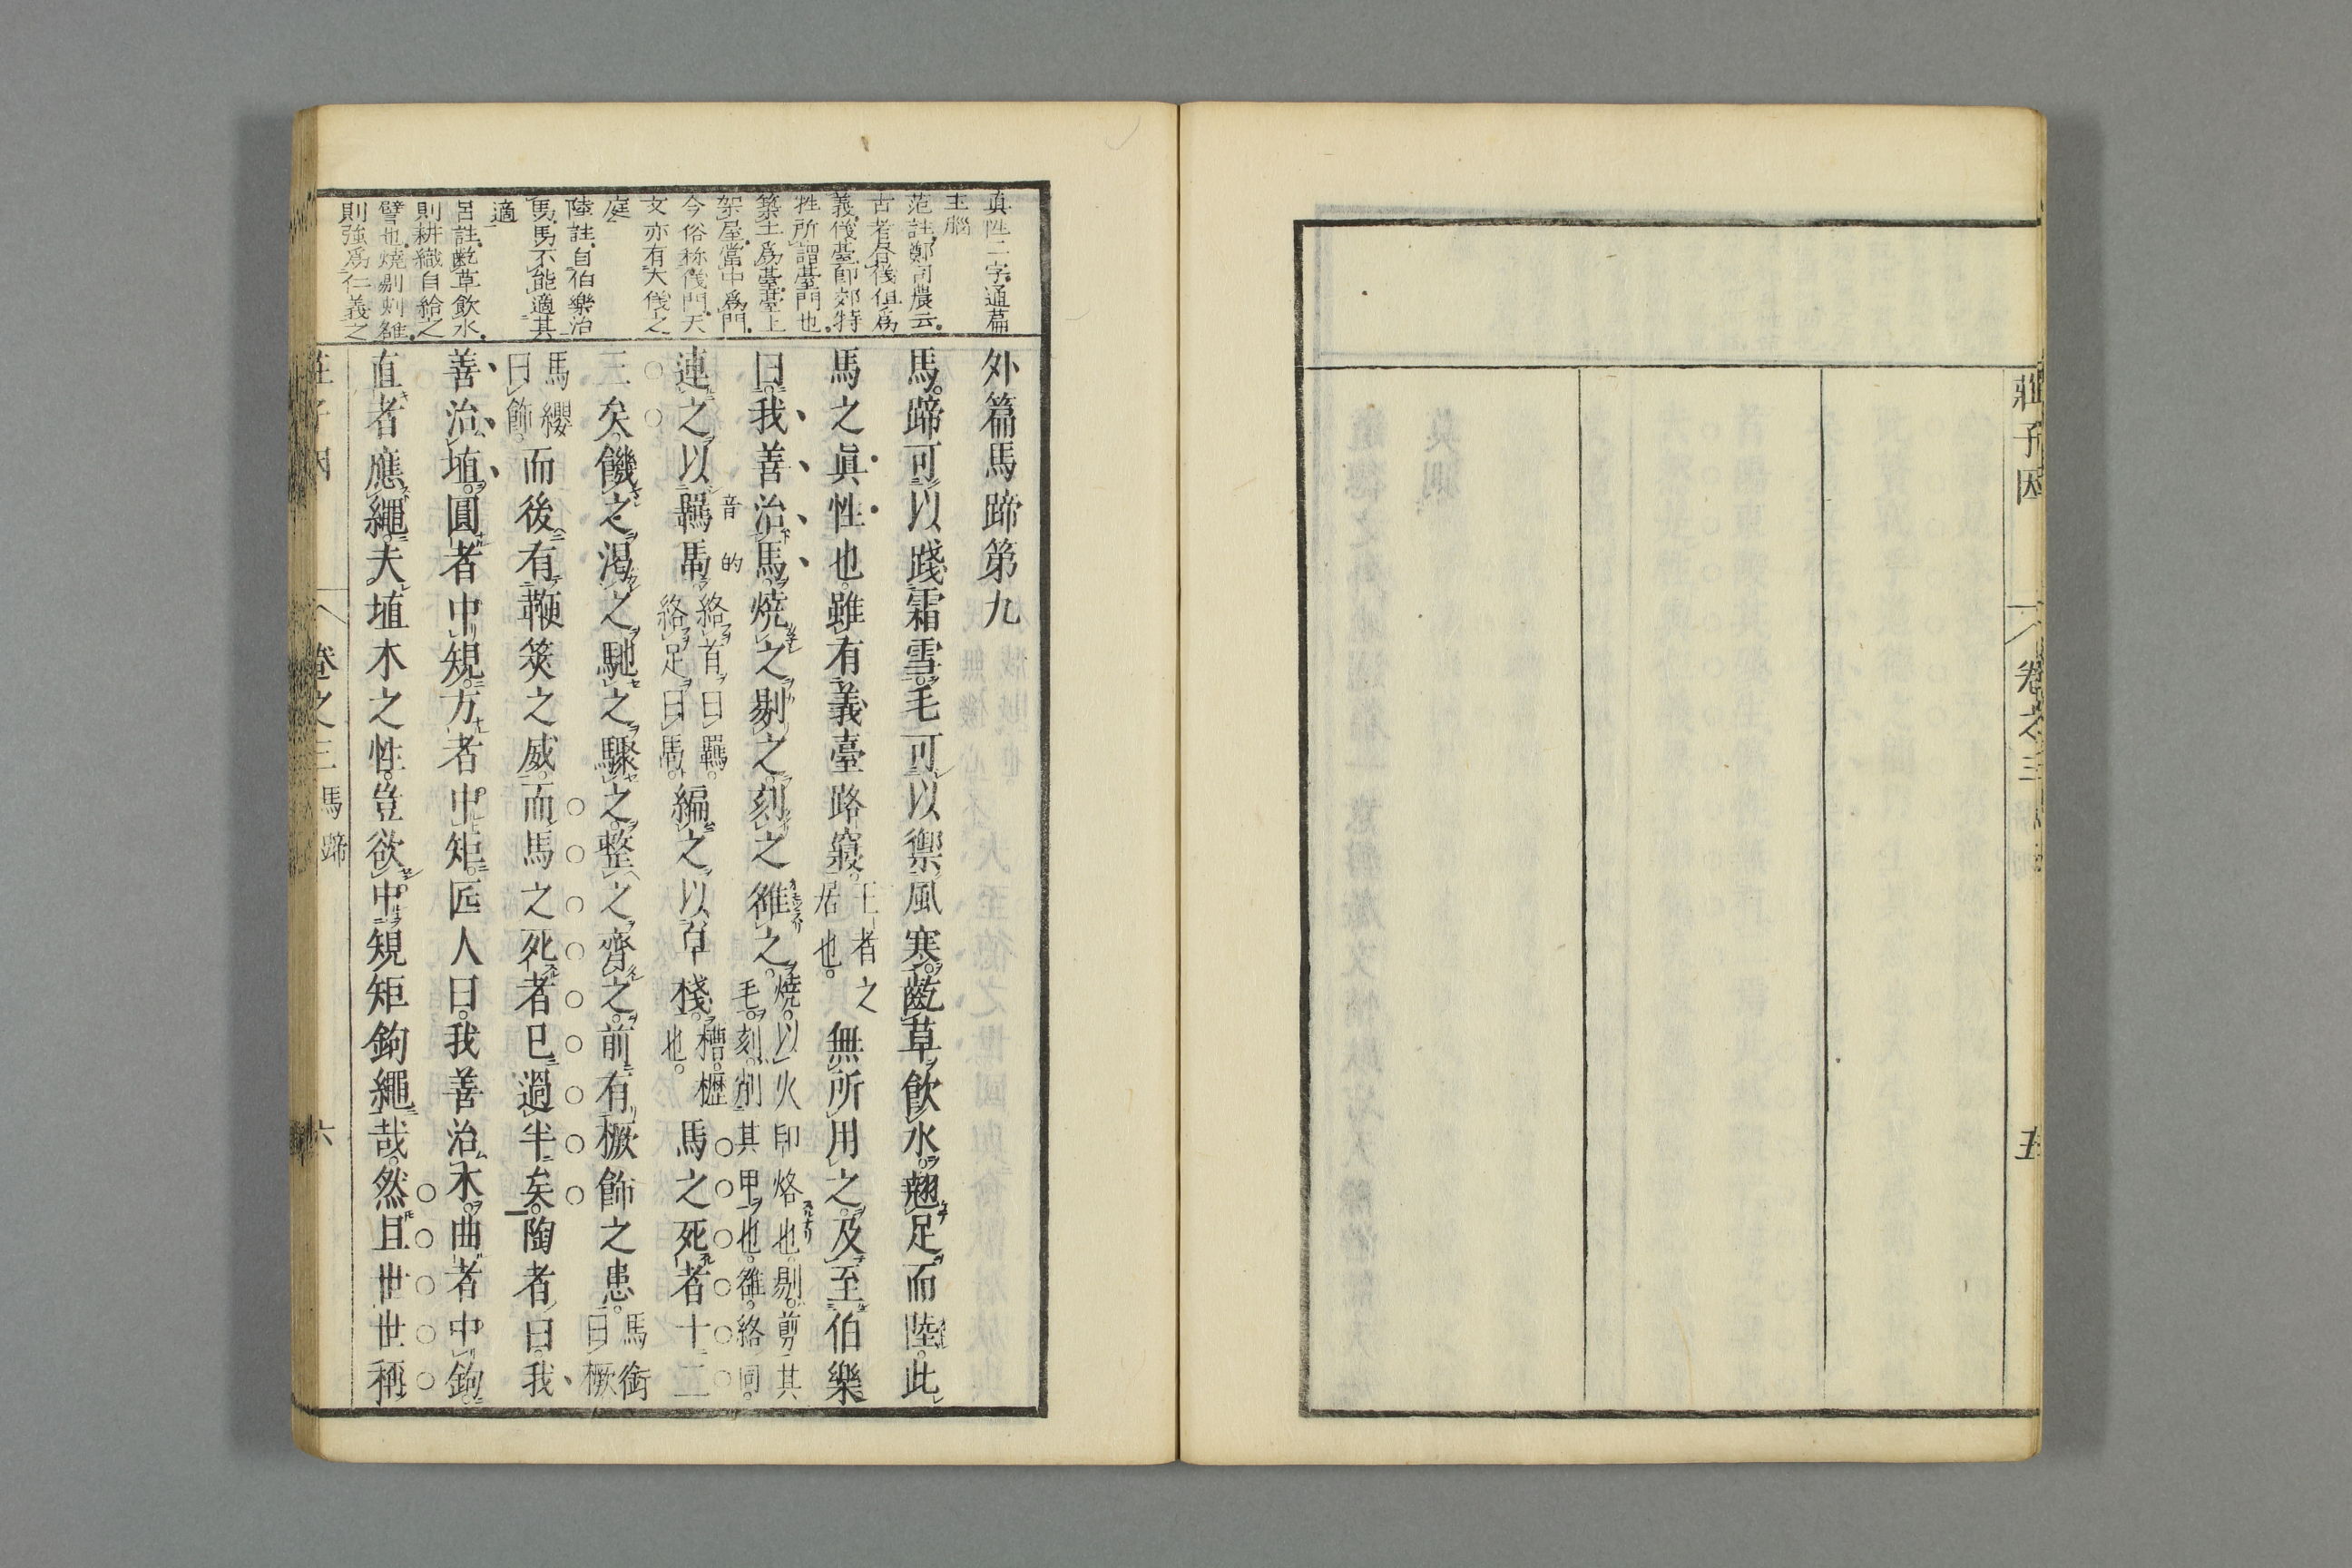 莊子因
卷之三
五
眞性二字通篇
主腦
范註鄭司農云
古者
義儀臺即郊特
牲所謂臺門也
築土爲臺臺上
架屋當中爲門
今俗称儀門天
文亦有大儀之
庭
陸註自伯樂治
馬馬不能適其
適
呂註齕草飲水
則耕織自給之
譬也燒剔刻雒
則強爲仁義之
外篇馬蹄第九
馬蹄可以踐霜雪毛可以禦風寒齕草飲水翹足而陸此
馬之眞性也雖有義臺路寢王者之居也無所用之及至伯樂
曰我善治馬燒之剔之刻之雒之燒以火印烙也剔剪其毛刻削其甲也雒絡同
連之以羈馽音的絡首曰羈絡足曰馽編之以皁棧槽櫪也馬之死者十二
三矣饑之渴之馳之驟之整之齊之前有橛飾之患馬銜曰橛
馬纓曰飾而後有鞭筴之威而馬之死者已過半矣陶者曰我
善治埴圓者中規方者中矩匠人曰我善治木曲者中鉤
直者應繩夫埴木之性豈欲中規矩鉤繩哉然且世世稱
莊子因
卷之三
馬蹄
六